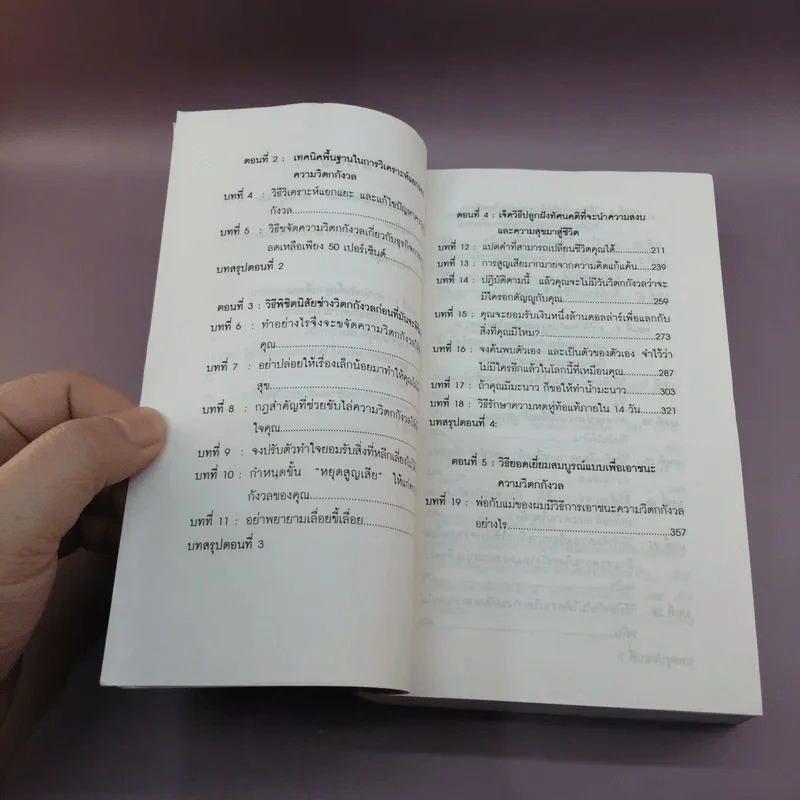 ตอนที่ 2 : เทคนิคพื้นฐานในการวิเคราะห์แยกแยะ
ความวิตกกังวล
บทที่ 4 : วิธีวิเคราะห์แยกแยะ และแก้ไขปัญหา
กังวล
บทที่ 5 : วิธีขจัดความวิตกกังวลเกี่ยวกับธุรกิจ
ลดเหลือเพียง 50 เปอร์เซ็นต์
บทสรุปตอนที่ 2
ตอนที่ 3 : วิธีพิชิตนิสัยช่างวิตกกังวลก่อนที่มันจะ
บทที่ 6 : ทำอย่างไรจึงจะขจัดความวิตกกังวล
คุณ
บทที่ 7 : อย่าปล่อยให้เรื่องเล็กน้อยมาทำให้คุณ
สุข
บทที่ 8 : กฎสำคัญที่ช่วยขับไล่ความวิตกกังวล
ใจคุณ
บทที่ 9 : จงปรับตัวทำใจยอมรับสิ่งที่หลีกเลี่ยงไม่ได้
บทที่ 10 : กำหนดขั้น "หยุดสูญเสีย" ให้แก่
กังวลของคุณ
บทที่ 11 : อย่าพยายามเลื่อยขี้เลื่อย
บทสรุปตอนที่ 3
ตอนที่ 4 : เจ็ดวิธีปลูกฝังทัศนคติที่จะนำความสงบ
และความสุขมาสู่ชีวิต
บทที่ 12 : แปดคำที่สามารถเปลี่ยนชีวิตคุณได้.............211
บทที่ 13 : การสูญเสียมากมายจากความคิดแก้แค้น.....239
บทที่ 14 : ปฏิบัติตามนี้ แล้วคุณจะไม่มีวันวิตกกังวลว่าจะ
มีใครอกตัญญูกับคุณ......................259
บทที่ 15 : คุณจะยอมรับเงินหนึ่งล้านดอลล่าร์เพื่อแลกกับ
สิ่งที่คุณมีไหม?..........................273
บทที่ 16 : จงค้นพบตัวเอง และเป็นตัวของตัวเอง จำไว้ว่า
ไม่มีใครอีกแล้วในโลกนี้ที่เหมือนคุณ............287
บทที่ 17 : ถ้าคุณมีมะนาว ก็ขอให้ทำน้ำมะนาว..........303
บทที่ 18 : วิธีรักษาความหดหู่ท้อแท้ภายใน 14 วัน......321
บทสรุปตอนที่ 4:
ตอนที่ 5 : วิธียอดเยี่ยมสมบูรณ์แบบเพื่อเอาชนะ
ความวิตกกังวล
บทที่ 19 : พ่อกับแม่ของผมมีวิธีการเอาชนะความวิตกกังวล
อย่างไร..................................357